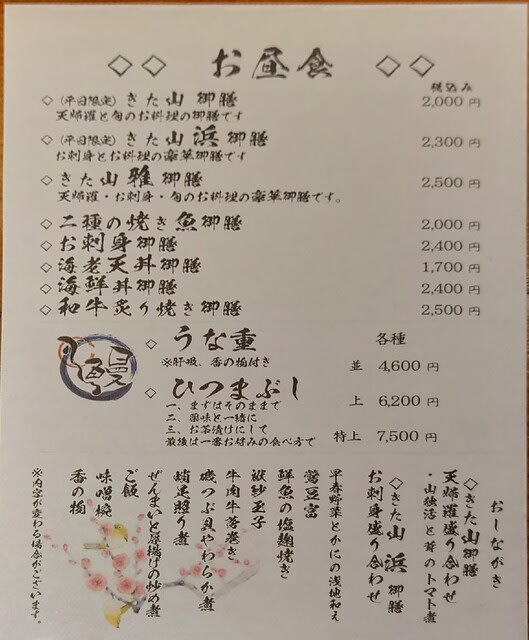 ◇◇ お昼食 ◇◇
税込み
◇(平日限定)きた山御膳 2,000円
天婦羅と旬のお料理の御膳です
◇(平日限定)きた山 浜 御膳 2,300円
お刺身とお料理の豪華御膳です
◇きた山 雅 御膳 2,500円
天婦羅・お刺身・旬のお料理の豪華御膳です。
◇二種の焼き魚御膳 2,000円
◇お刺身御膳 2,400円
◇海老天丼御膳 1,700円
◇海鮮丼御膳 2,400円
◇和牛炙り焼き御膳 2,500円
◇うな重 各種
※肝吸、香の物付き
並 4,600円
◇ひつまぶし
一、まずはそのままで
二、薬味と一緒に
三、お茶漬けにして
最後は一番お好みの食べ方で
上 6,200円
特上 7,500円
鰻
おしながき
◇きた山御膳
天婦羅盛り合わせ
・山独活と苺のトマト煮
◇きた山 浜 御膳
お刺身盛り合わせ
早春野菜とかにの浅地和え
鶯豆富
鮮魚の塩麹焼き
袱紗玉子
牛肉牛蒡巻き
磯つぶ貝やわらか煮
蛸足照り煮
ぜんまいと厚揚げの炒め煮
ご飯
味噌椀
香の物
※内容が変わる場合がございます。